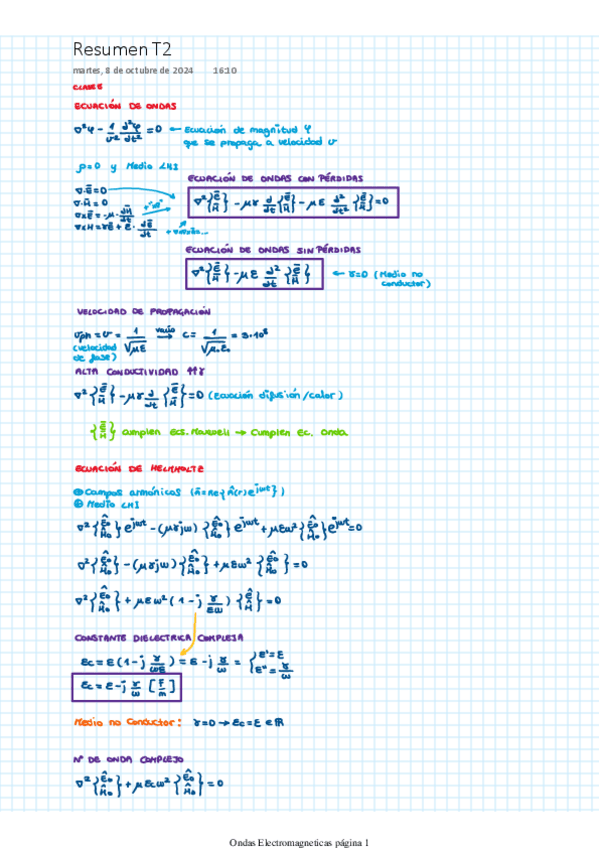 Resumen T2
martes, 8 de octubre de 2024 16:10
CLASE 5
ECUACIÓN DE ONDAS
∇²φ - 1/v² d²φ/dt² = 0 ← Ecuación de magnitud φ
que se propaga a velocidad v
ρ=0 y Medio LHI
ECUACIÓN DE ONDAS CON PÉRDIDAS
∇·Ē=0
∇·H̄=0
∇xĒ=-μ·dH̄/dt
∇xH̄=γĒ+ε·dĒ/dt
∇²{Ē H̄} - μγ d/dt {Ē H̄} - με d²/dt² {Ē H̄} = 0
ECUACIÓN DE ONDAS SIN PÉRDIDAS
∇²{Ē H̄} - με d²/dt {Ē H̄} ← γ=0 (Medio no
conductor)
VELOCIDAD DE PROPAGACIÓN
vph = v = 1/√με vacío → c = 1/√μ₀ε₀ = 3·10⁸
(velocidad
de fase)
ALTA CONDUCTIVIDAD ↑↑γ
∇²{Ē H̄} - μγ d/dt {Ē H̄} = 0 (Ecuación difusión/calor)
{Ē H̄} cumplen Ecs. Maxwell → Cumplen Ec. Onda
ECUACIÓN DE HELMHOLTZ
① Campos armónicos (Ā=Re{Â(r)e^jωt})
② Medio LHI
∇²{Ê₀ Ĥ₀}e^jωt - (μγjω){Ê₀ Ĥ₀}e^jωt + μεω²{Ê₀ Ĥ₀}e^jωt = 0
∇²{Ê₀ Ĥ₀} - (μγjω){Ê₀ Ĥ₀} + μεω²{Ê₀ Ĥ₀} = 0
∇²{Ê₀ Ĥ₀} + μεω²(1 - j γ/εω){Ê Ĥ} = 0
CONSTANTE DIELECTRICA COMPLEJA
εc = ε(1 - j γ/ωε) = ε - j γ/ω = {ε'=ε ε''=γ/ω
εc = ε - j γ/ω [F/m]
Medio no Conductor: γ=0 → εc=ε ∈ ℝ
Nº DE ONDA COMPLEJO
∇²{Ê₀ Ĥ₀} + μεcω²{Ê₀ Ĥ₀} = 0
Ondas Electromagneticas página 1